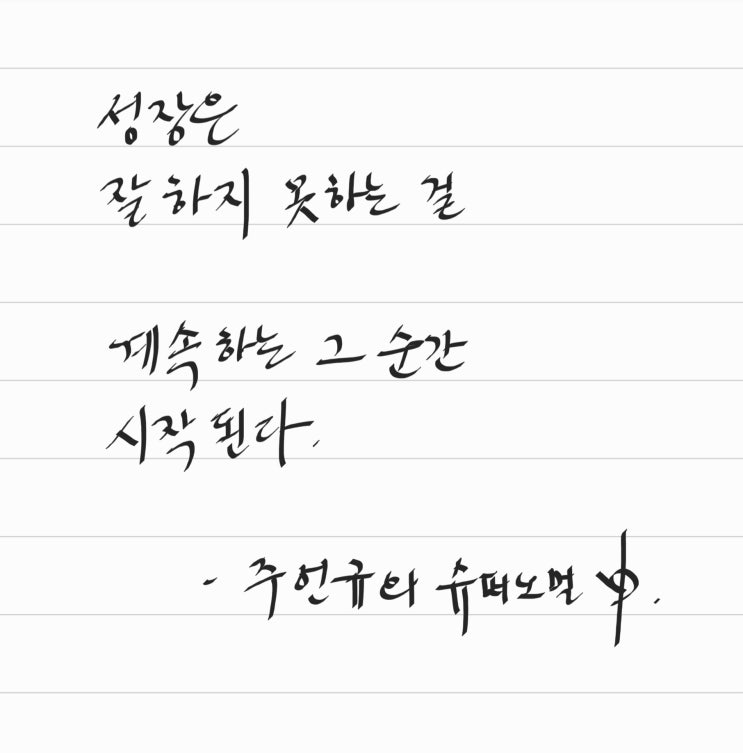 성장은
잘하지 못하는 걸
계속하는 그 순간
시작된다.
- 주언규의 슈퍼노멀 中.